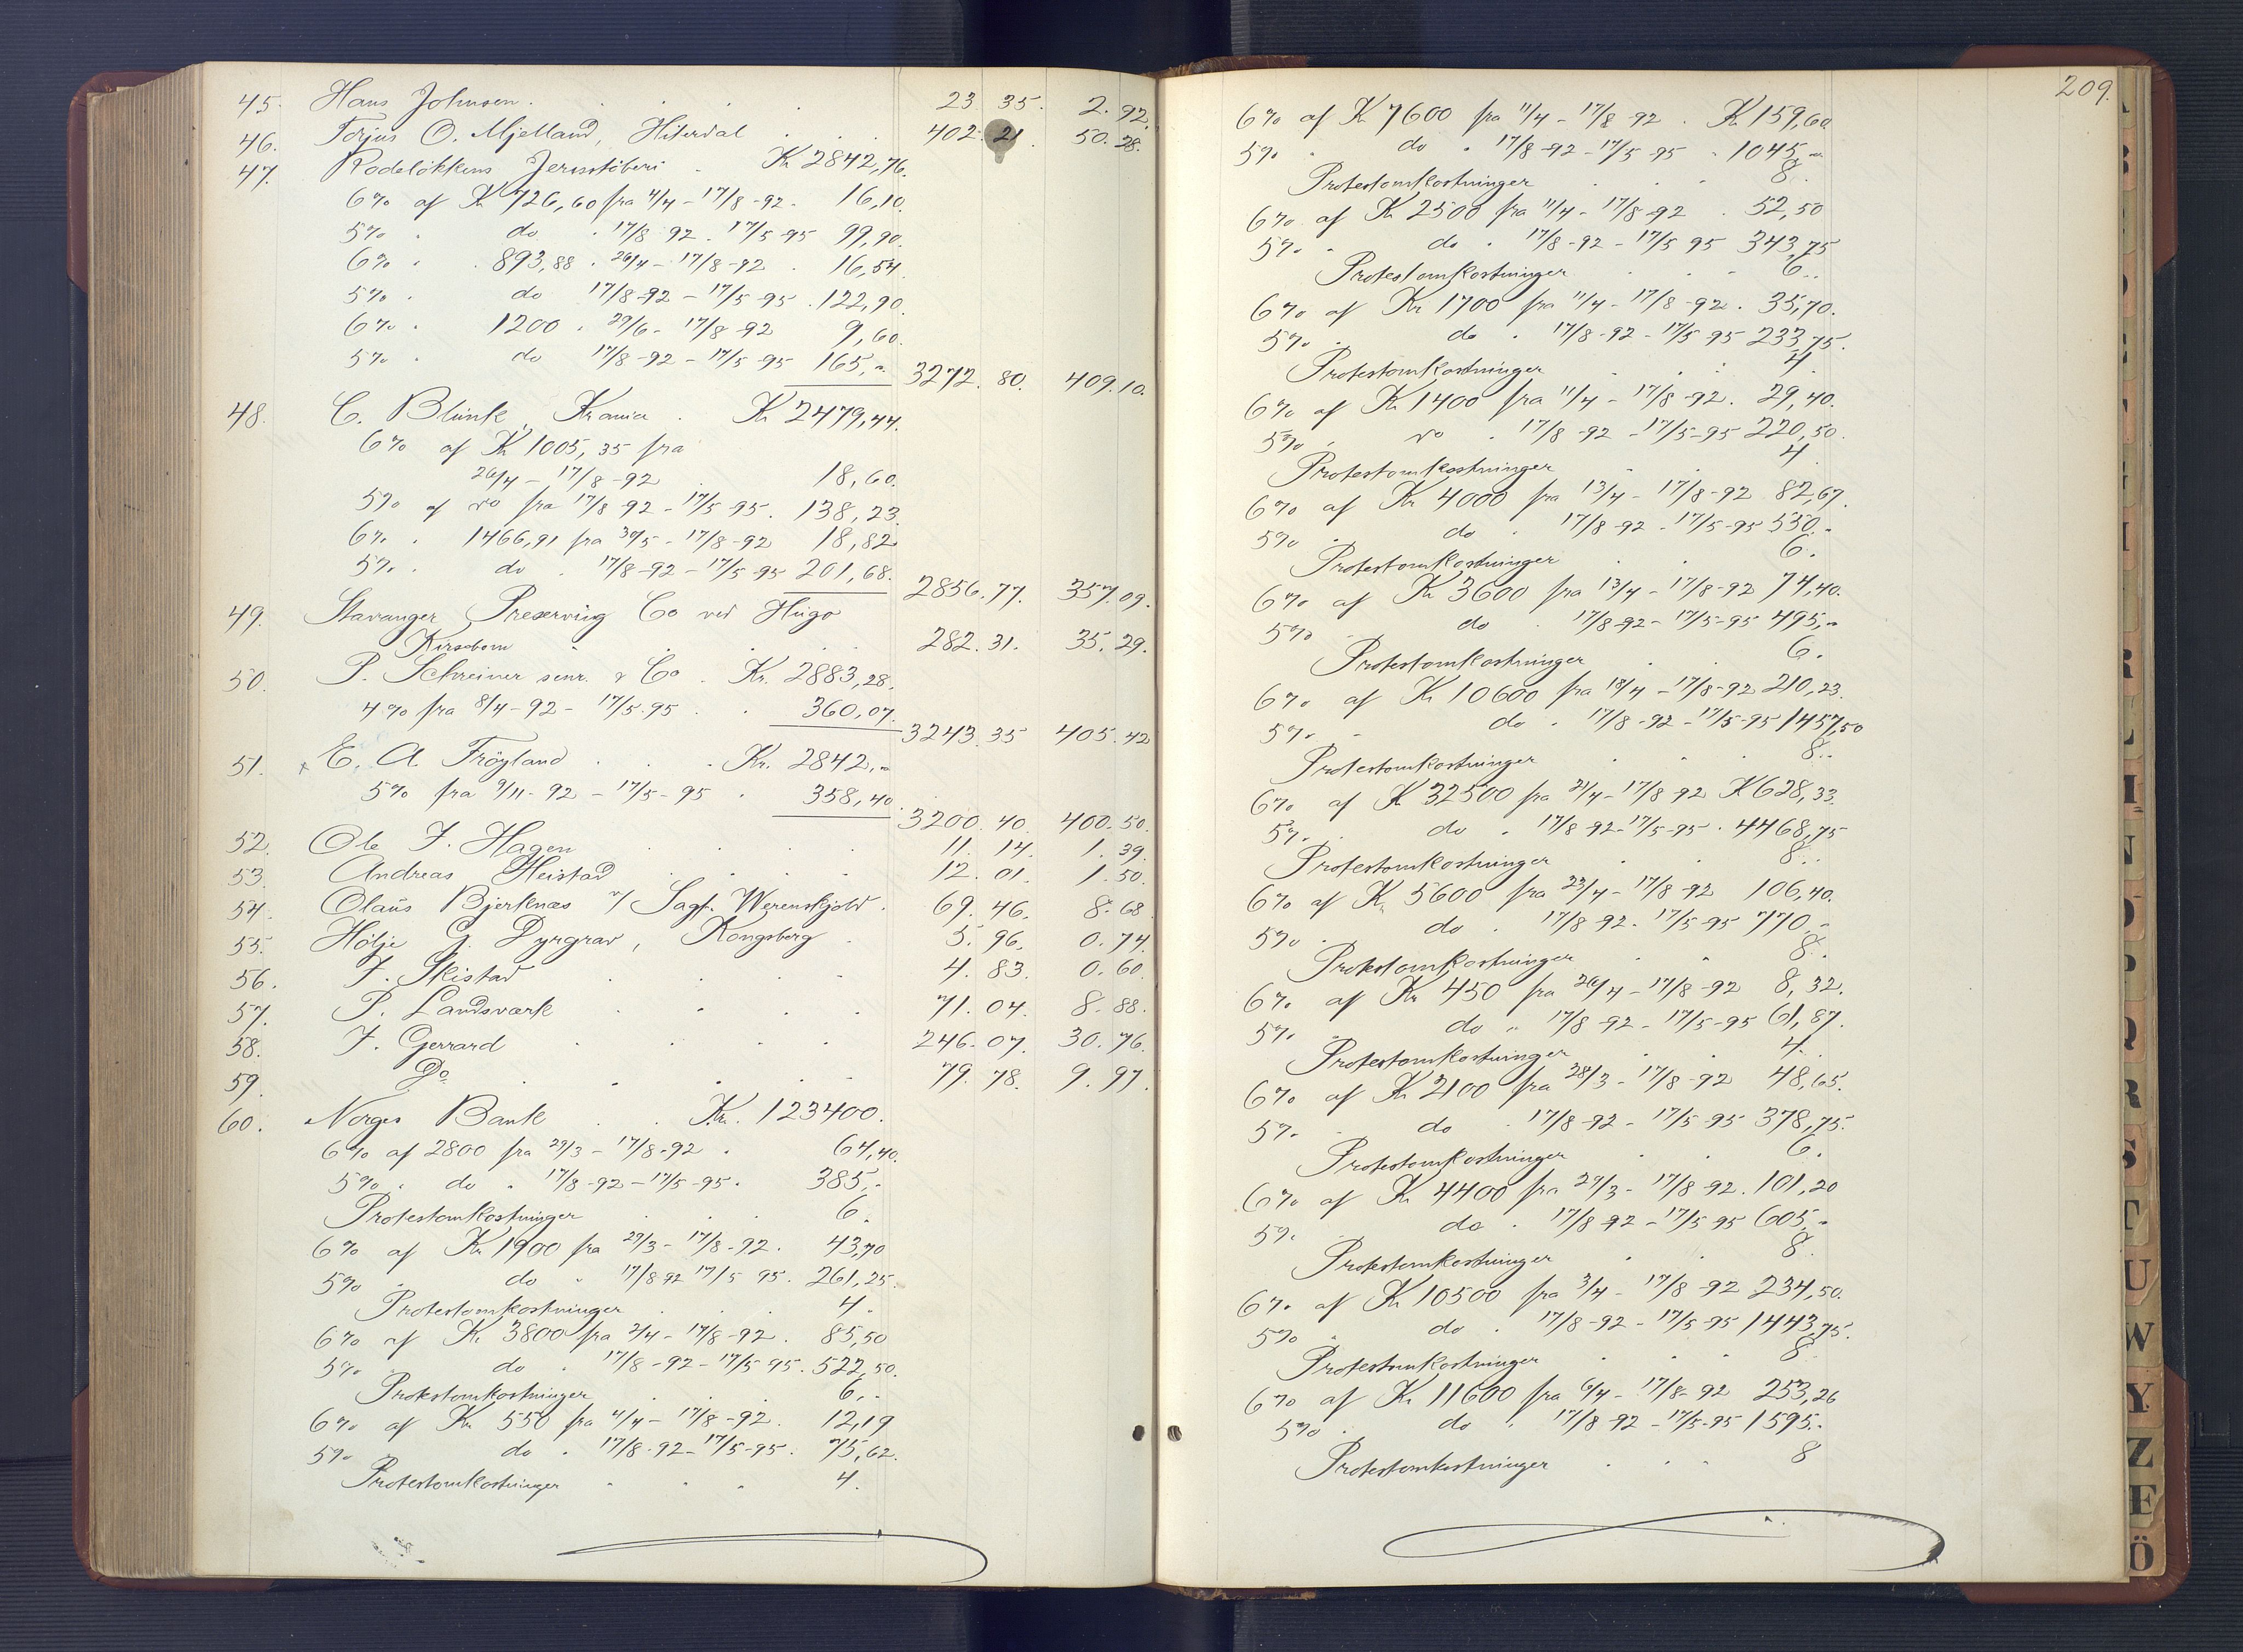 45. Hans Johnsen . . . . 23. 35. 2. 92.
46. Torjus O. Mjelland, Hiterdal . . . 402. 21. 50. 28.
47. Rodeløkkens Jernstøberi . Kr 2842,76.
6% af Kr 726,60 fra 11/4 - 17/8 -92 - 16,10.
5% " do . 17/8 92 - 17/5 95 99,90.
6% " . 893,88 . 26/4 - 17/8 -92 . 16,54
5% . do 17/8 -92 - 17/5 -95 . 122,90.
6% . 1200 . 29/6 - 17/8 92 9,60.
5% . do 17/8 -92 - 17/5 -95 165,- 3272. 80. 409. 10.
48. C. Blunk, Krania . Kr 2479,44.
6% af Kr 1005,35 fra
26/4 - 17/8 -92 18,60.
5% af do fra 17/8 -92 - 17/5 -95. 138,23.
6% . 1466,91 fra 30/5 - 17/8 -92 18,82
5% . do . 17/8 -92 - 17/5 -95 201,68. 2856. 77. 357. 09.
49. Stavanger Preserving Co ved Hugo
Kirsebom . . . 282. 31. 35. 29.
50. P. Schreiner senr. & Co . Kr. 2883,28.
4% fra 8/4 - 92 - 17/5 -95 . . 360,07. 3243. 35 405. 42
51. x E. A. Frøyland . . . Kr. 2842,-
5% fra 9/11 - 92 - 17/5 - 95 . 358,40. 3200. 40. 400. 50.
52. Ole J. Hagen . . . . 11. 14. 1. 39.
53. Andreas Heistad . . . . 12. 01. 1. 50.
54. Olaus Bjerknæs v/ Sagf. Werenskjold . 69. 46. 8. 68
55. Hølje G. Dyrgrav, Kongsberg . 5. 96. 0. 74.
56. J. Skistad . . . 4. 83. 0. 60.
57. P. Landsværk . . . . 71. 04. 8. 88.
58. J. Gerrard . . . . 246. 07. 30. 76.
59. Do . . . . 79. 78. 9. 97.
60. Norges Bank . . Kr. 123400.
6% af 2800 fra 29/3 - 17/8 -92 . 64,40.
5% . do . 17/8 -92 - 17/5 -95 . 385,-
Protestomkostninger . . . 6.
6% af Kr 1900 fra 29/3 - 17/8 -92. 43,70
5% . do . 17/8 92 17/5 95. 261,25.
Protestomkostninger . . . 4.
6% af Kr 3800 fra 2/4 - 17/8 -92. 85,50
5% do . 17/8 - 92 - 17/5 95. 522,50.
Protestomkostninger . . . 6.
6% af Kr 550 fra 4/4 - 17/8 -92. 12,19
5% do . 17/8 -92 - 17/5 -95. 75,62.
Protestomkostninger . . . 4.
209.
6% af Kr 7600 fra 11/4 - 17/8 -92 . Kr 159,60
5% . do . 17/8 -92 - 17/5 95 . 1045,-
Protestomkostninger . . . 8.
6% af Kr 2500 fra 11/4 - 17/8 -92 . 52,50
5% . do . 17/8 -92 - 17/5 95 343,75
Protestomkostninger . . . 6.
6% af Kr 1700 fra 11/4 - 17/8 -92. 35,70.
5% . do . 17/8 -92 - 17/5 95 233,75.
Protestomkostninger . . . 4
6% af Kr 1400 fra 11/4 - 17/8 -92. 29,40.
5% . do . 17/8 -92 - 17/5 -95 220,50.
Protestomkostninger . . . 4
6% af Kr 4000 fra 13/4 - 17/8 -92 82,67.
5% . do . 17/8 -92 - 17/5 -95 550.-
Protestomkostninger . . 6.
6% af Kr 3600 fra 13/4 - 17/8 -92 74,40.
5% . do . 17/8 -92 - 17/5 -95 495,-
Protestomkostninger . . 6.
6% af Kr 10600 fra 18/4 - 17/8 -92 210,23.
5% . do . 17/8 -92 - 17/5 -95 1457,50
Protestomkostninger . . . 8.
6% af Kr 32500 fra 21/4 - 17/8 92 Kr 628,33.
5% . do . 17/8 92 - 17/5 -95 . 4468,75
Protestomkostninger . . 8.
6% af Kr 5600 fra 23/4 - 17/8 -92 106,40.
5% . do . 17/8 -92. 17/5 -95 770.-
Protestomkostninger . . 8.
6% af Kr 450 fra 26/4 - 17/8 -92 8,32.
5% . do . 17/8 92 - 17/5 -95 61,87.
Protestomkostninger . . 4.
6% af Kr 2100 fra 28/3 - 17/8 -92 48,65.
5% . do . 17/8 -92 - 17/5 95 378,75.
Protestomkostninger . . 6.
6% af Kr 4400 fra 29/3 - 17/8 92. 101,20
5% . do . 17/8 92 - 17/5 95 605,-
Protestomkostninger . . 8.
6% af Kr 10500 fra 3/4 - 17/8 -92 234,50.
5% . do . 17/8 -92 - 17/5 -95 1443,75.
Protestomkostninger . . . 8
6% af Kr 11600 fra 6/4 - 17/8 -92 253,26
5% . do . 17/8 -92 - 17/5 -95 1595.-
Protestomkostninger . . . 8
U
W
Y
Z
Ö